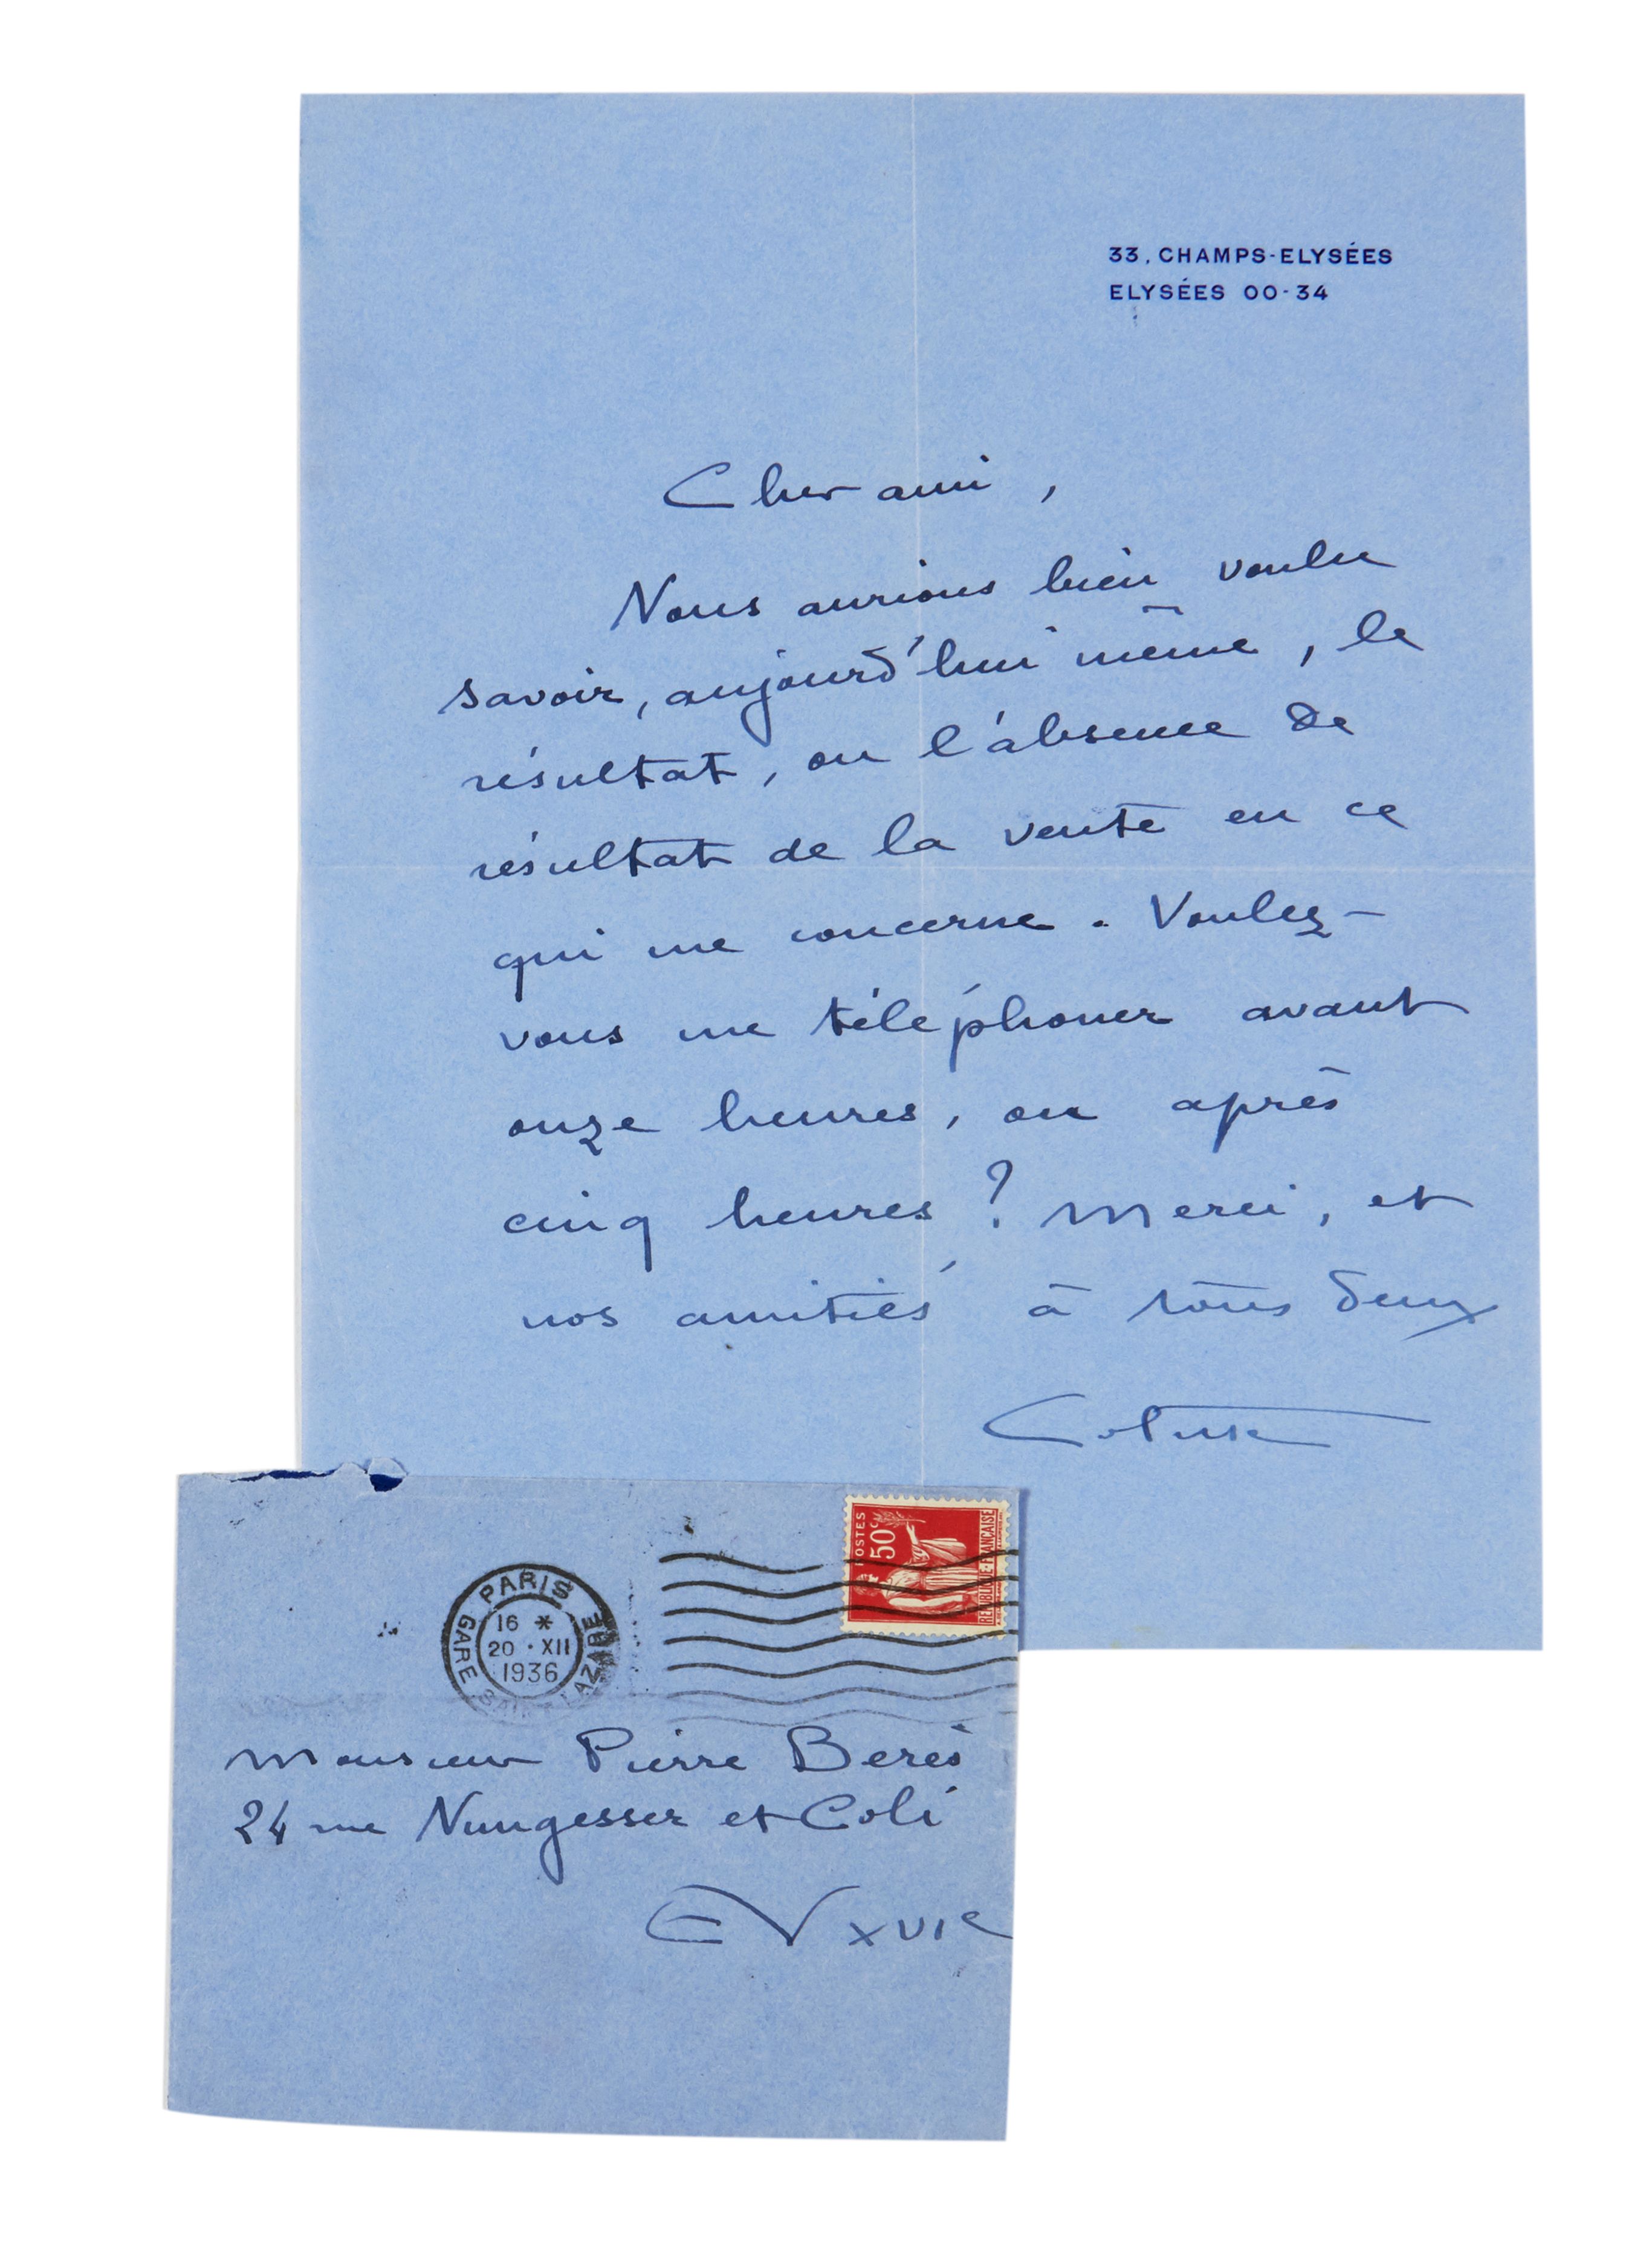 33, CHAMPS-ELYSÉES
ELYSÉES 00-34
Cher ami,
Nous aurions bien voulu
savoir, aujourd'hui même, le
résultat, ou l'absence de
résultat de la vente en ce
qui me concerne. Voulez-
vous me téléphoner avant
onze heures, ou après
cinq heures ? Merci, et
nos amitiés à tous deux
Colette
POSTES
50c
REPUBLIQUE FRANCAISE
PARIS
16 *
20 · XII
1936
GARE SAINT LAZARE
Monsieur Pierre Berès
24 rue Nungesser et Coli
EV XVIe